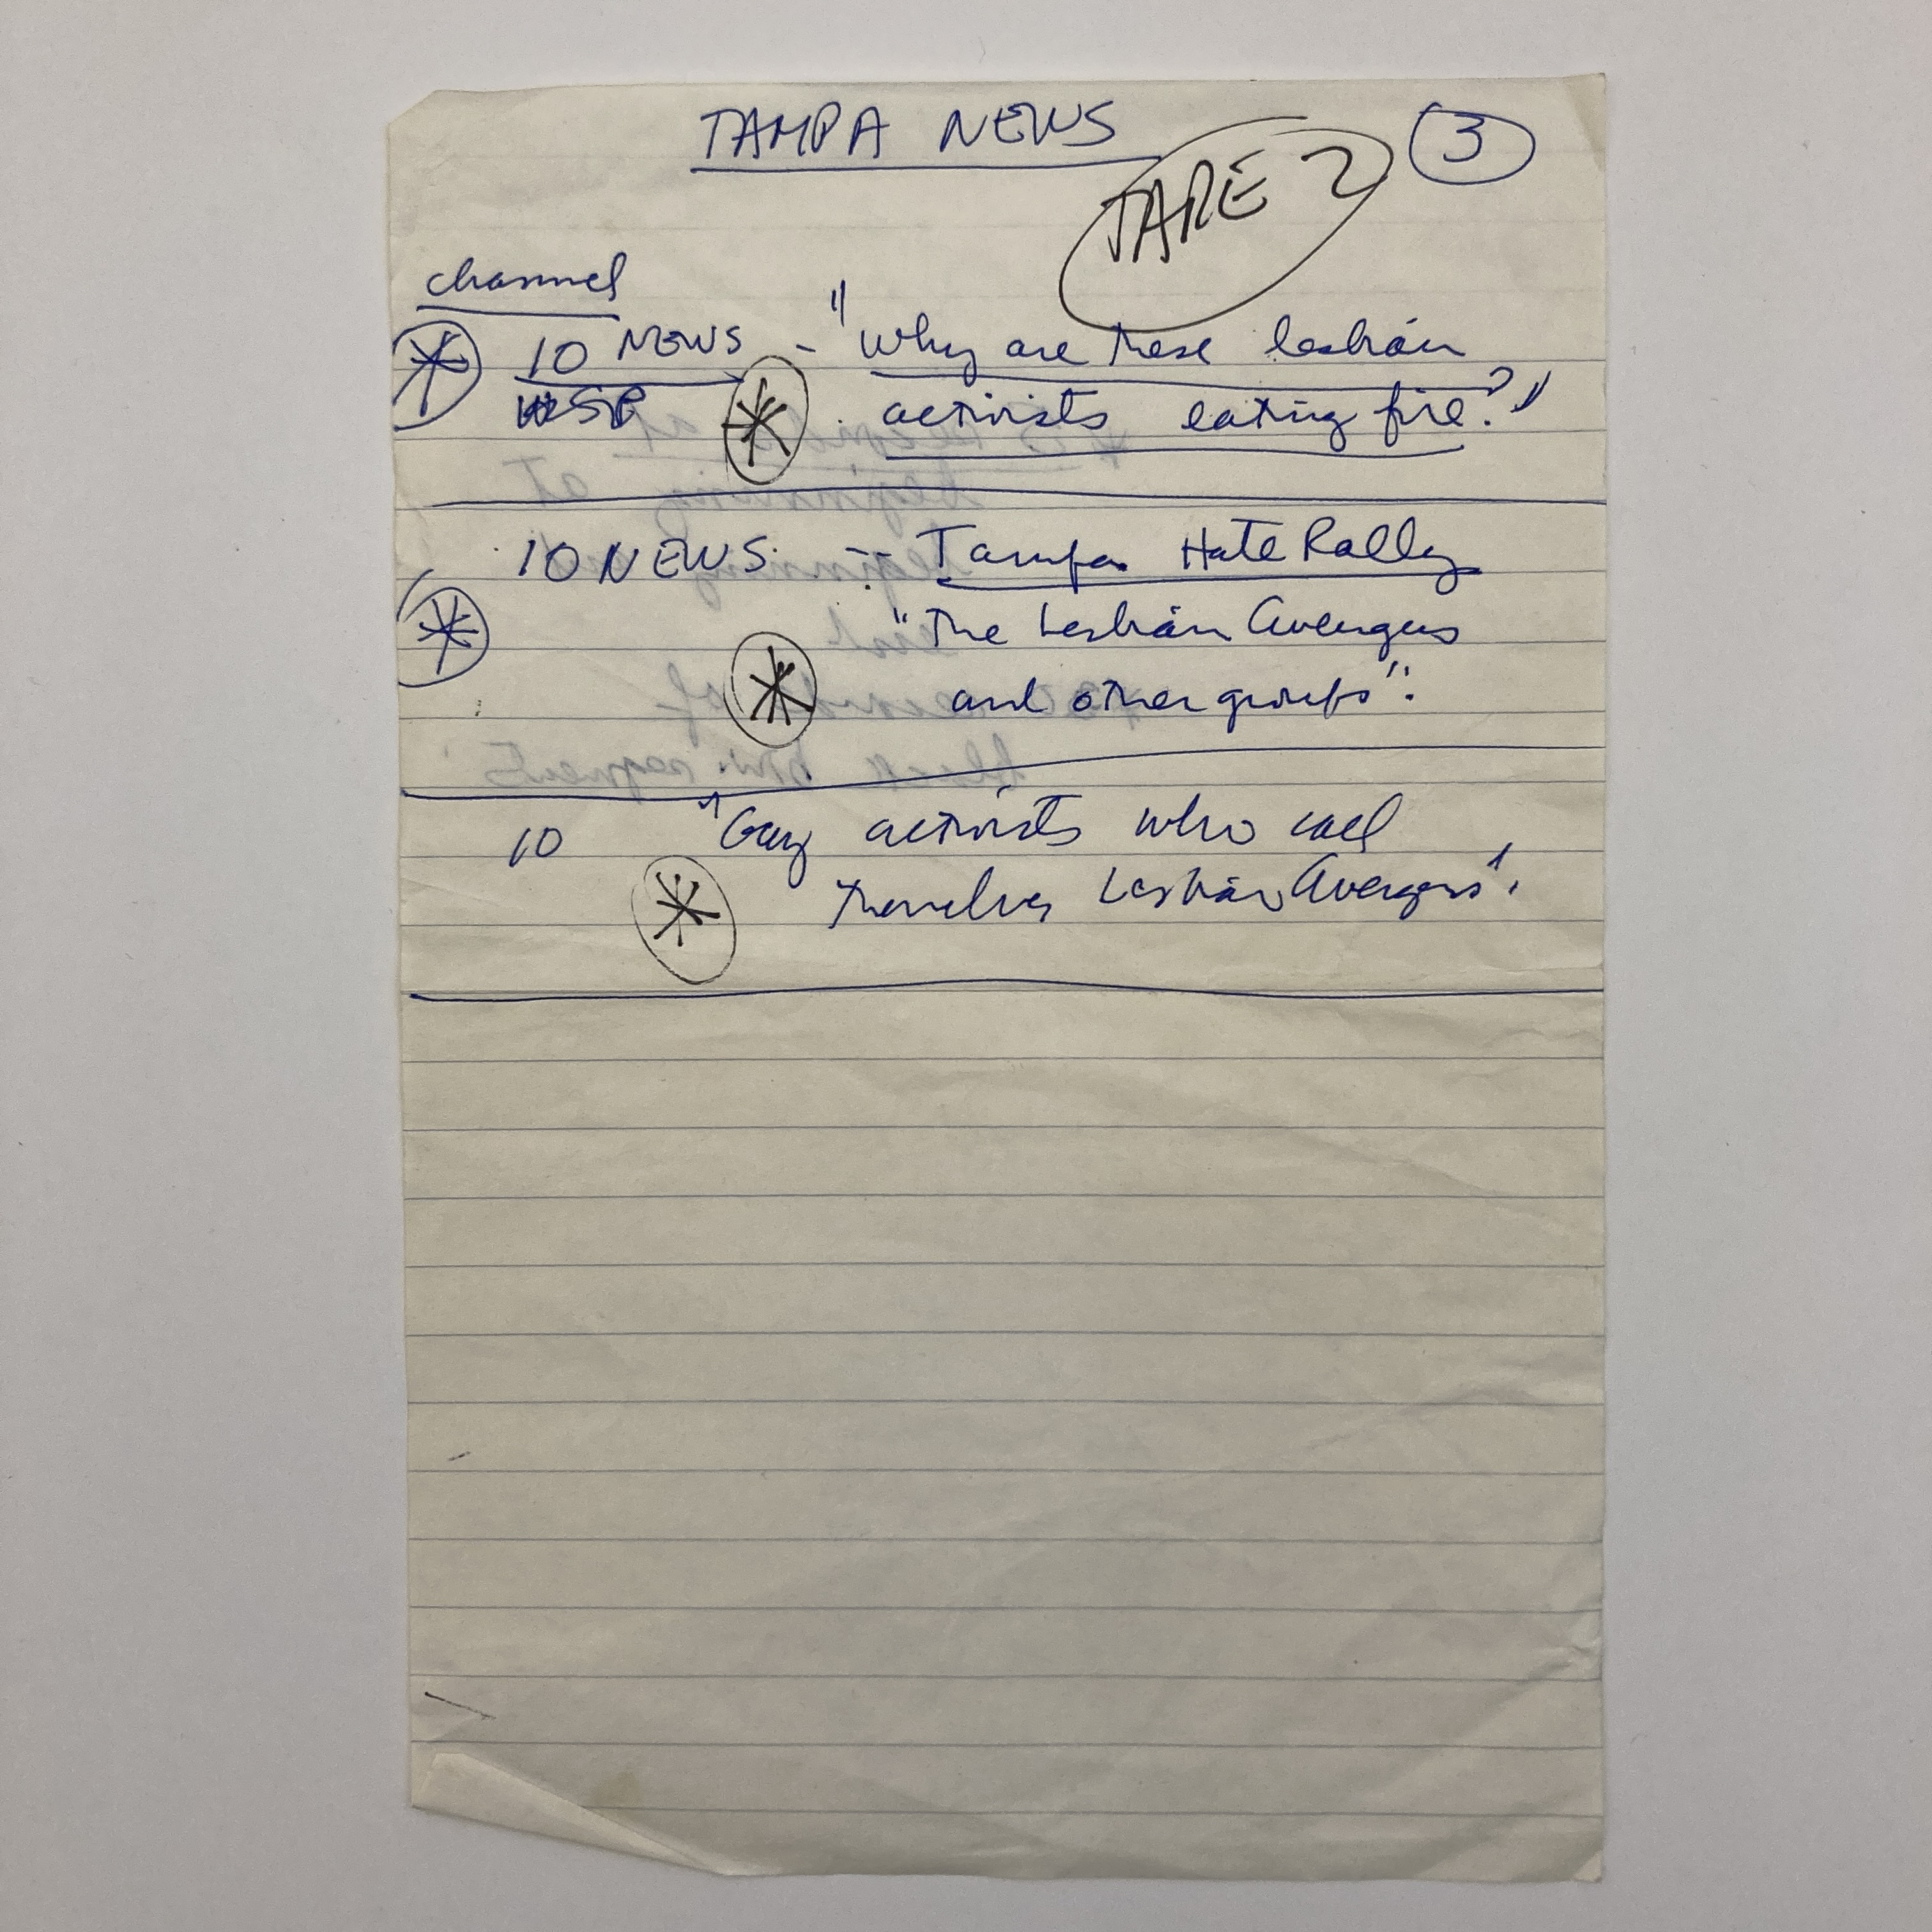 TAMPA NEWS
3
TAPE 2
channel
10 NEWS - "Why are these lesbian
activists eating fire?"
10 NEWS -- Tampa Hate Rally
"The Lesbian Avengers
and other groups".
10 "Gay activists who call
themselves Lesbian Avengers".